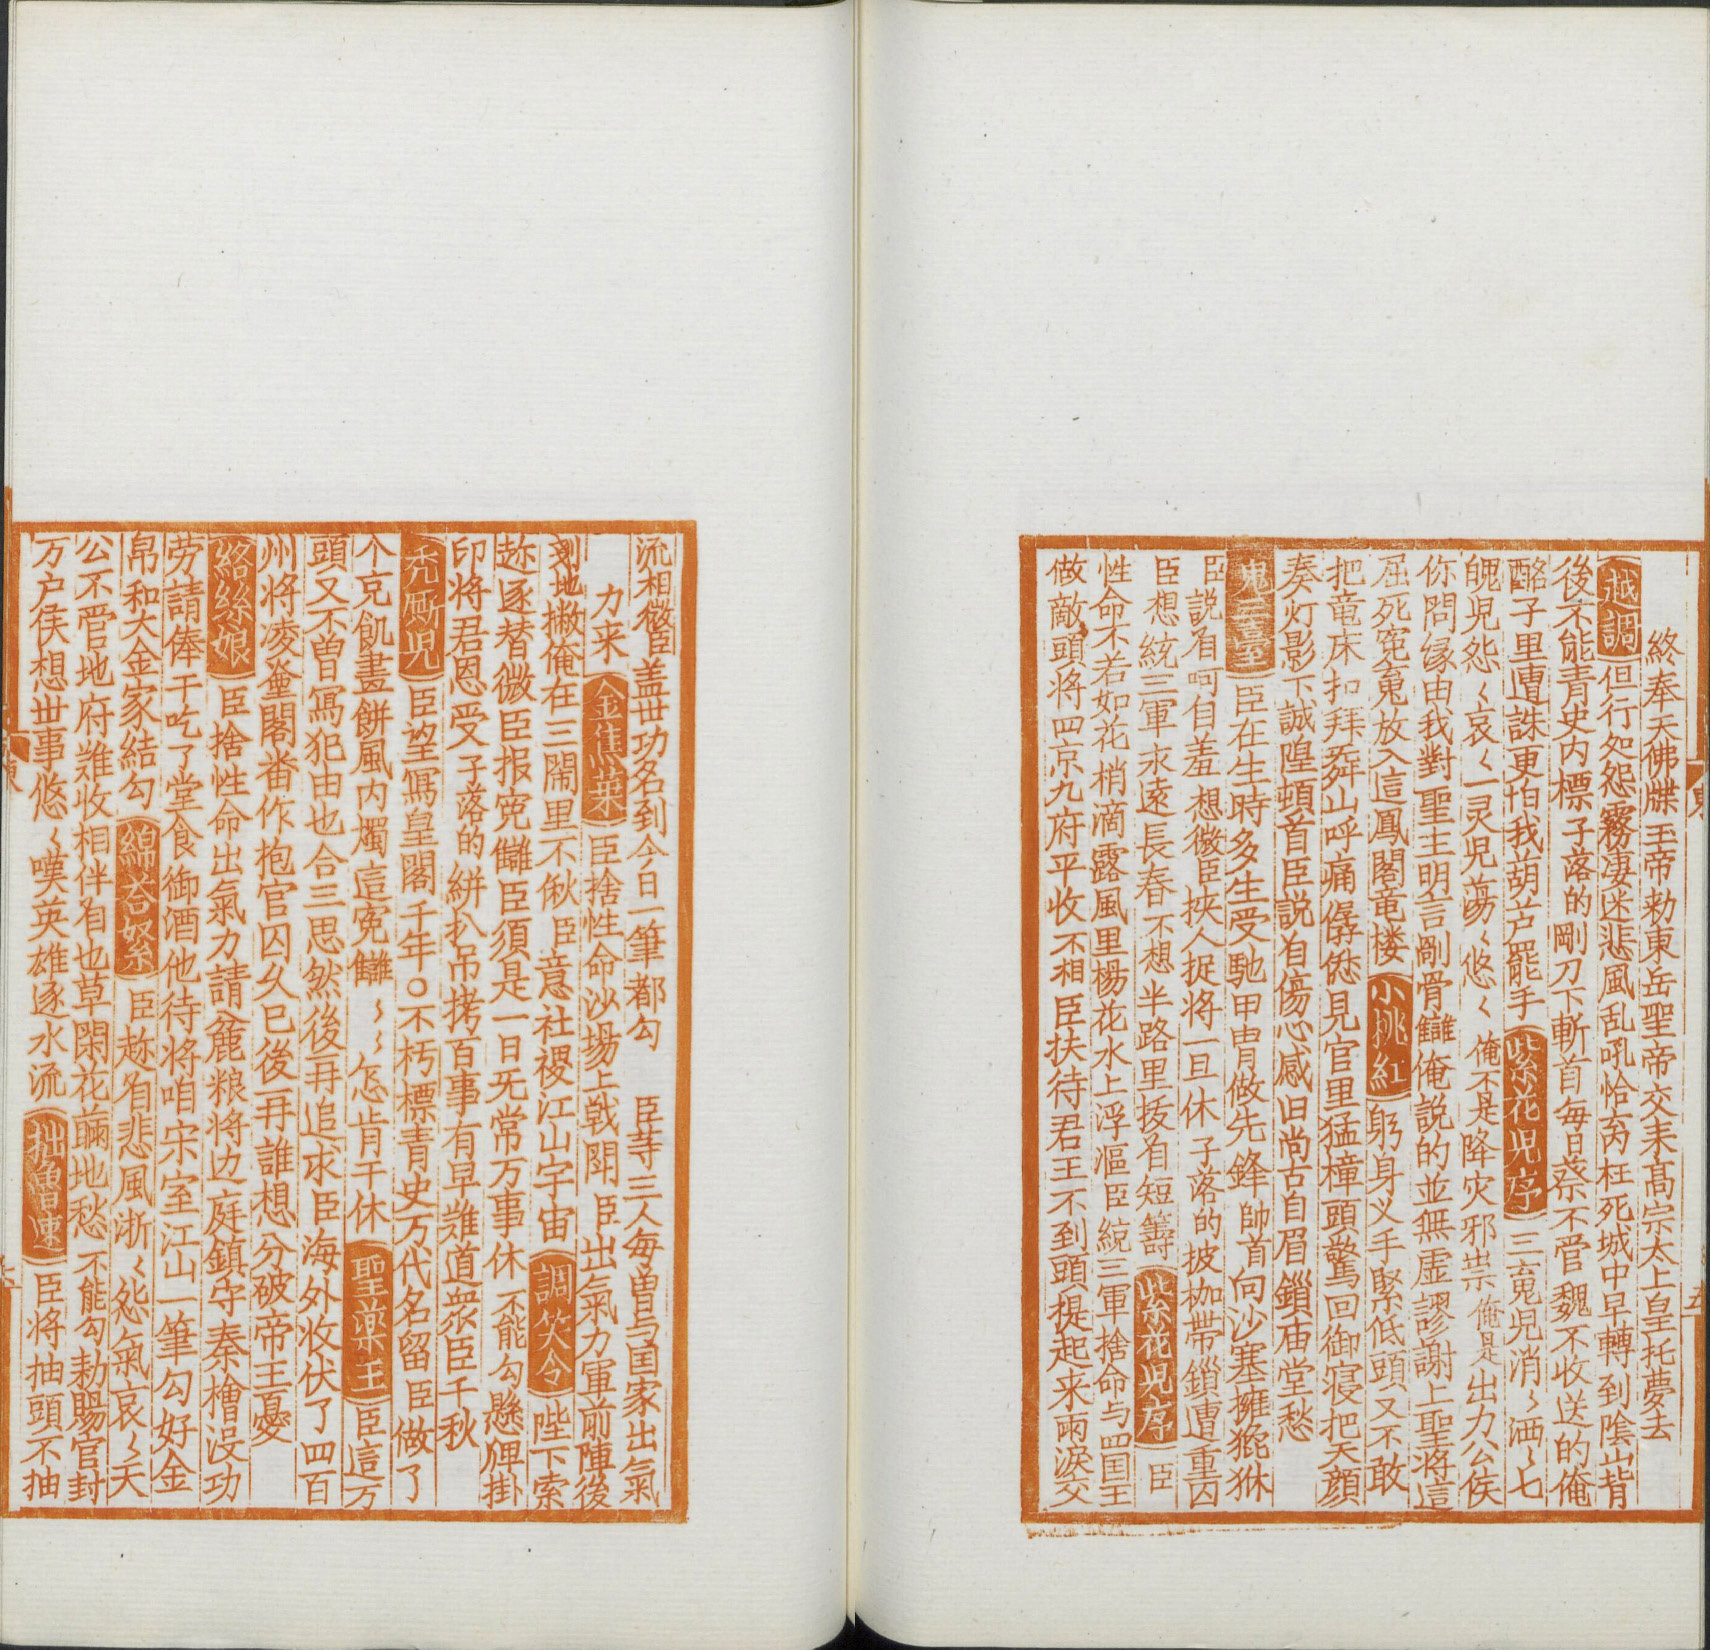 終奉天佛牒玉帝勑東岳聖帝交来髙宗太上皇托夢去
越調 但行処怨霧凄迷悲風乱吼恰刄枉死城中早轉到陰山背
後不能青史内標子落的剛刀下斬首每日蔡不管魏不收送的俺
酩子里遭誅更怕我葫芦罷手 紫花児序 三䰟児消〻洒〻七
魄児怨〻哀〻一灵児蕩〻悠〻俺不是降灾邪祟俺是出力公侯
你問縁由我對聖主明言剮骨讎俺說的並無虛謬謝上聖将這
屈死寃䰟放入這鳳閣竜楼 小挑紅 躬身乂手緊低頭又不敢
把竜床扣拜舞山呼痛僝僽見官里猛擡頭驚回御寝把天顔
奏灯影下誠隍頓首臣說㫖傷心感旧尚古自眉鎖庙堂愁
鬼三臺 臣在生時多生受馳甲胄做先鋒帥首向沙塞擁貔貅
臣說㫖呵自羞想微臣挾人捉将一旦休子落的披枷帶鎖遭重囚
臣想統三軍永遠長春不想半路里拔㫖短籌 紫花児序 臣
性命不若如花梢滴露風里楊花水上浮漚臣統三軍捨命与四国王
做敵頭将四京九府平收不相臣扶待君王不到頭提起来兩淚交
流相微臣盖丗功名到今日一筆都勾 臣等三人每曽与国家出氣
力来 金蕉葉 臣捨性命沙場上戦鬪臣出氣力軍前陣後
刬地撇俺在三閙里不偢臣意社禝江山宇宙 調笑令 陛下索
趂逐替微臣报寃讎臣須是一日旡常万事休不能勾懸牌掛
印将君恩受子落的絣扒吊拷百事有早難道衆臣千秋
禿厮児 臣望寫皇閣千年○不朽標青史万代名留臣做了
个克飢畫餅風内燭這寃讎〻〻怎肯干休 聖藥王 臣這万
頭又不曽寫犯由也合三思然後再追求臣海外收伏了四百
州将凌煙閣畨作抱官囚久已後再誰想分破帝王憂
絡絲娘 臣捨性命出氣力請麄粮将边庭鎮守秦檜没功
劳請俸干吃了堂食御酒他待将咱宋室江山一筆勾好金
帛和大金家結勾 綿荅絮 臣趂㫖悲風浙〻怨氣哀〻天
公不管地府難收相伴㫖也草閑花滿地愁不能勾勑賜官封
万户侯想丗事悠〻嘆英雄逐水流 拙魯速 臣将抽頭不抽